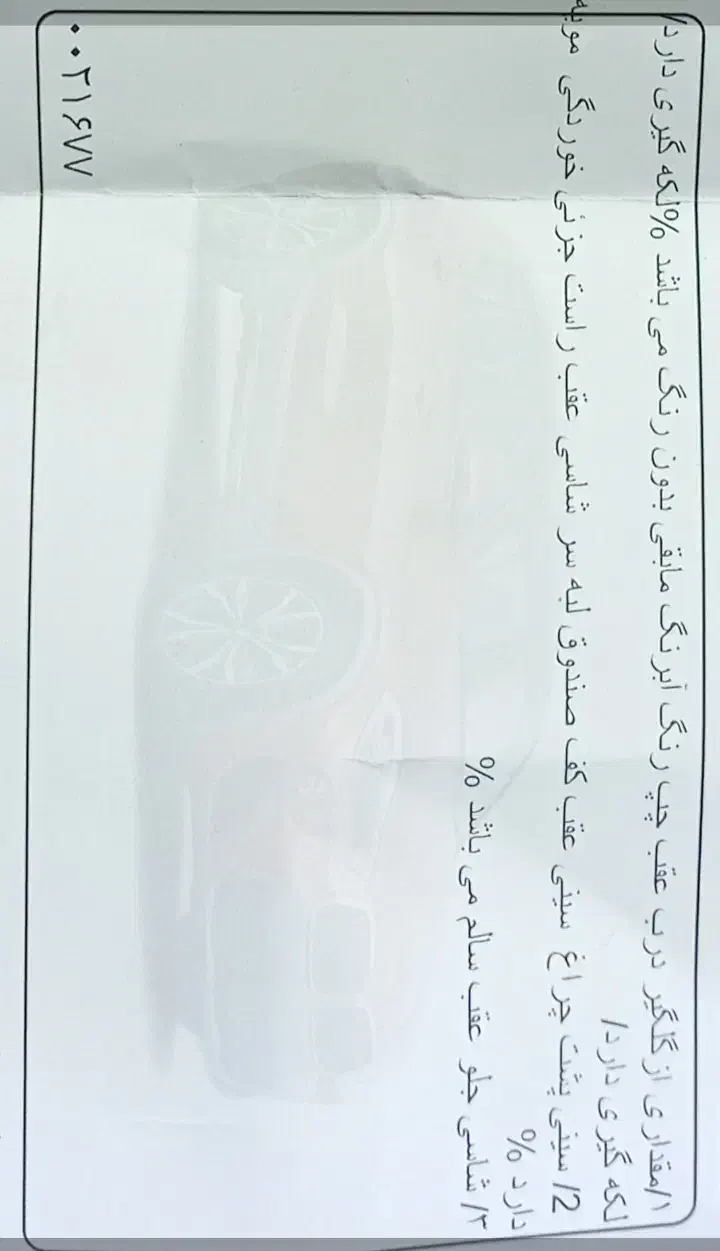 ۱/مقداری از گلگیر درب عقب چپ رنگ آبرنگ مابقی بدون رنگ می باشد %لکه گیری دارد/
لکه گیری دارد/
2/ سینی پشت چراغ سینی عقب کف صندوق لبه سر شاسی عقب راست جزئی خوردگی مویه
دارد %
۳/ شاسی جلو عقب سالم می باشد %
۰۰۲۱۶۷۷